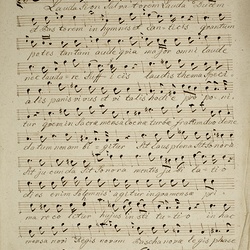 Lauda Sion Salvatorem Lauda Ducem
et Pastorem in hymnis et Canticis quantum
potes tantum aude quia major omni laude
nec laudare suffi cis laudis thema Speci
a lis panis vivus et vi talis hodie pro poni
tur quem in Sacrae mensa coenae turbae fratrum duodenae
datum non am bi gitur Sit laus plena Sit Sonora
Sit ju cunda Sit decora mentis ju bi la ti o
dies enim solemnis a gitur in qua mensae pri
ma re co litur hujus in sti tu ti o in hac
mensa novi Regis novum Pascha novae legis phase